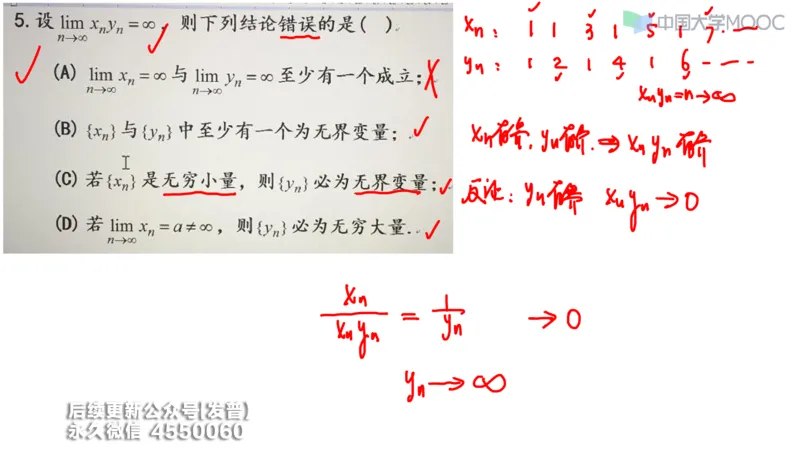 5. 设 lim n→∞ xₙyₙ = ∞, 则下列结论错误的是( ).
(A) lim n→∞ xₙ = ∞ 与 lim n→∞ yₙ = ∞ 至少有一个成立;
(B) {xₙ} 与 {yₙ} 中至少有一个为无界变量;
(C) 若 {xₙ} 是无穷小量, 则 {yₙ} 必为无界变量;
(D) 若 lim n→∞ xₙ = a ≠ ∞, 则 {yₙ} 必为无穷大量.
中国大学MOOC
xₙ: 1 1 3 1 5 1 7 ---
yₙ: 1 2 1 4 1 6 ---
xₙyₙ = n → ∞
xₙ有界, yₙ有界. ⇒ xₙyₙ有界
反证: yₙ有界 xₙyₙ → 0
xₙ / xₙyₙ = 1 / yₙ → 0
yₙ → ∞
后续更新公众号(发普)
永久微信 4550060